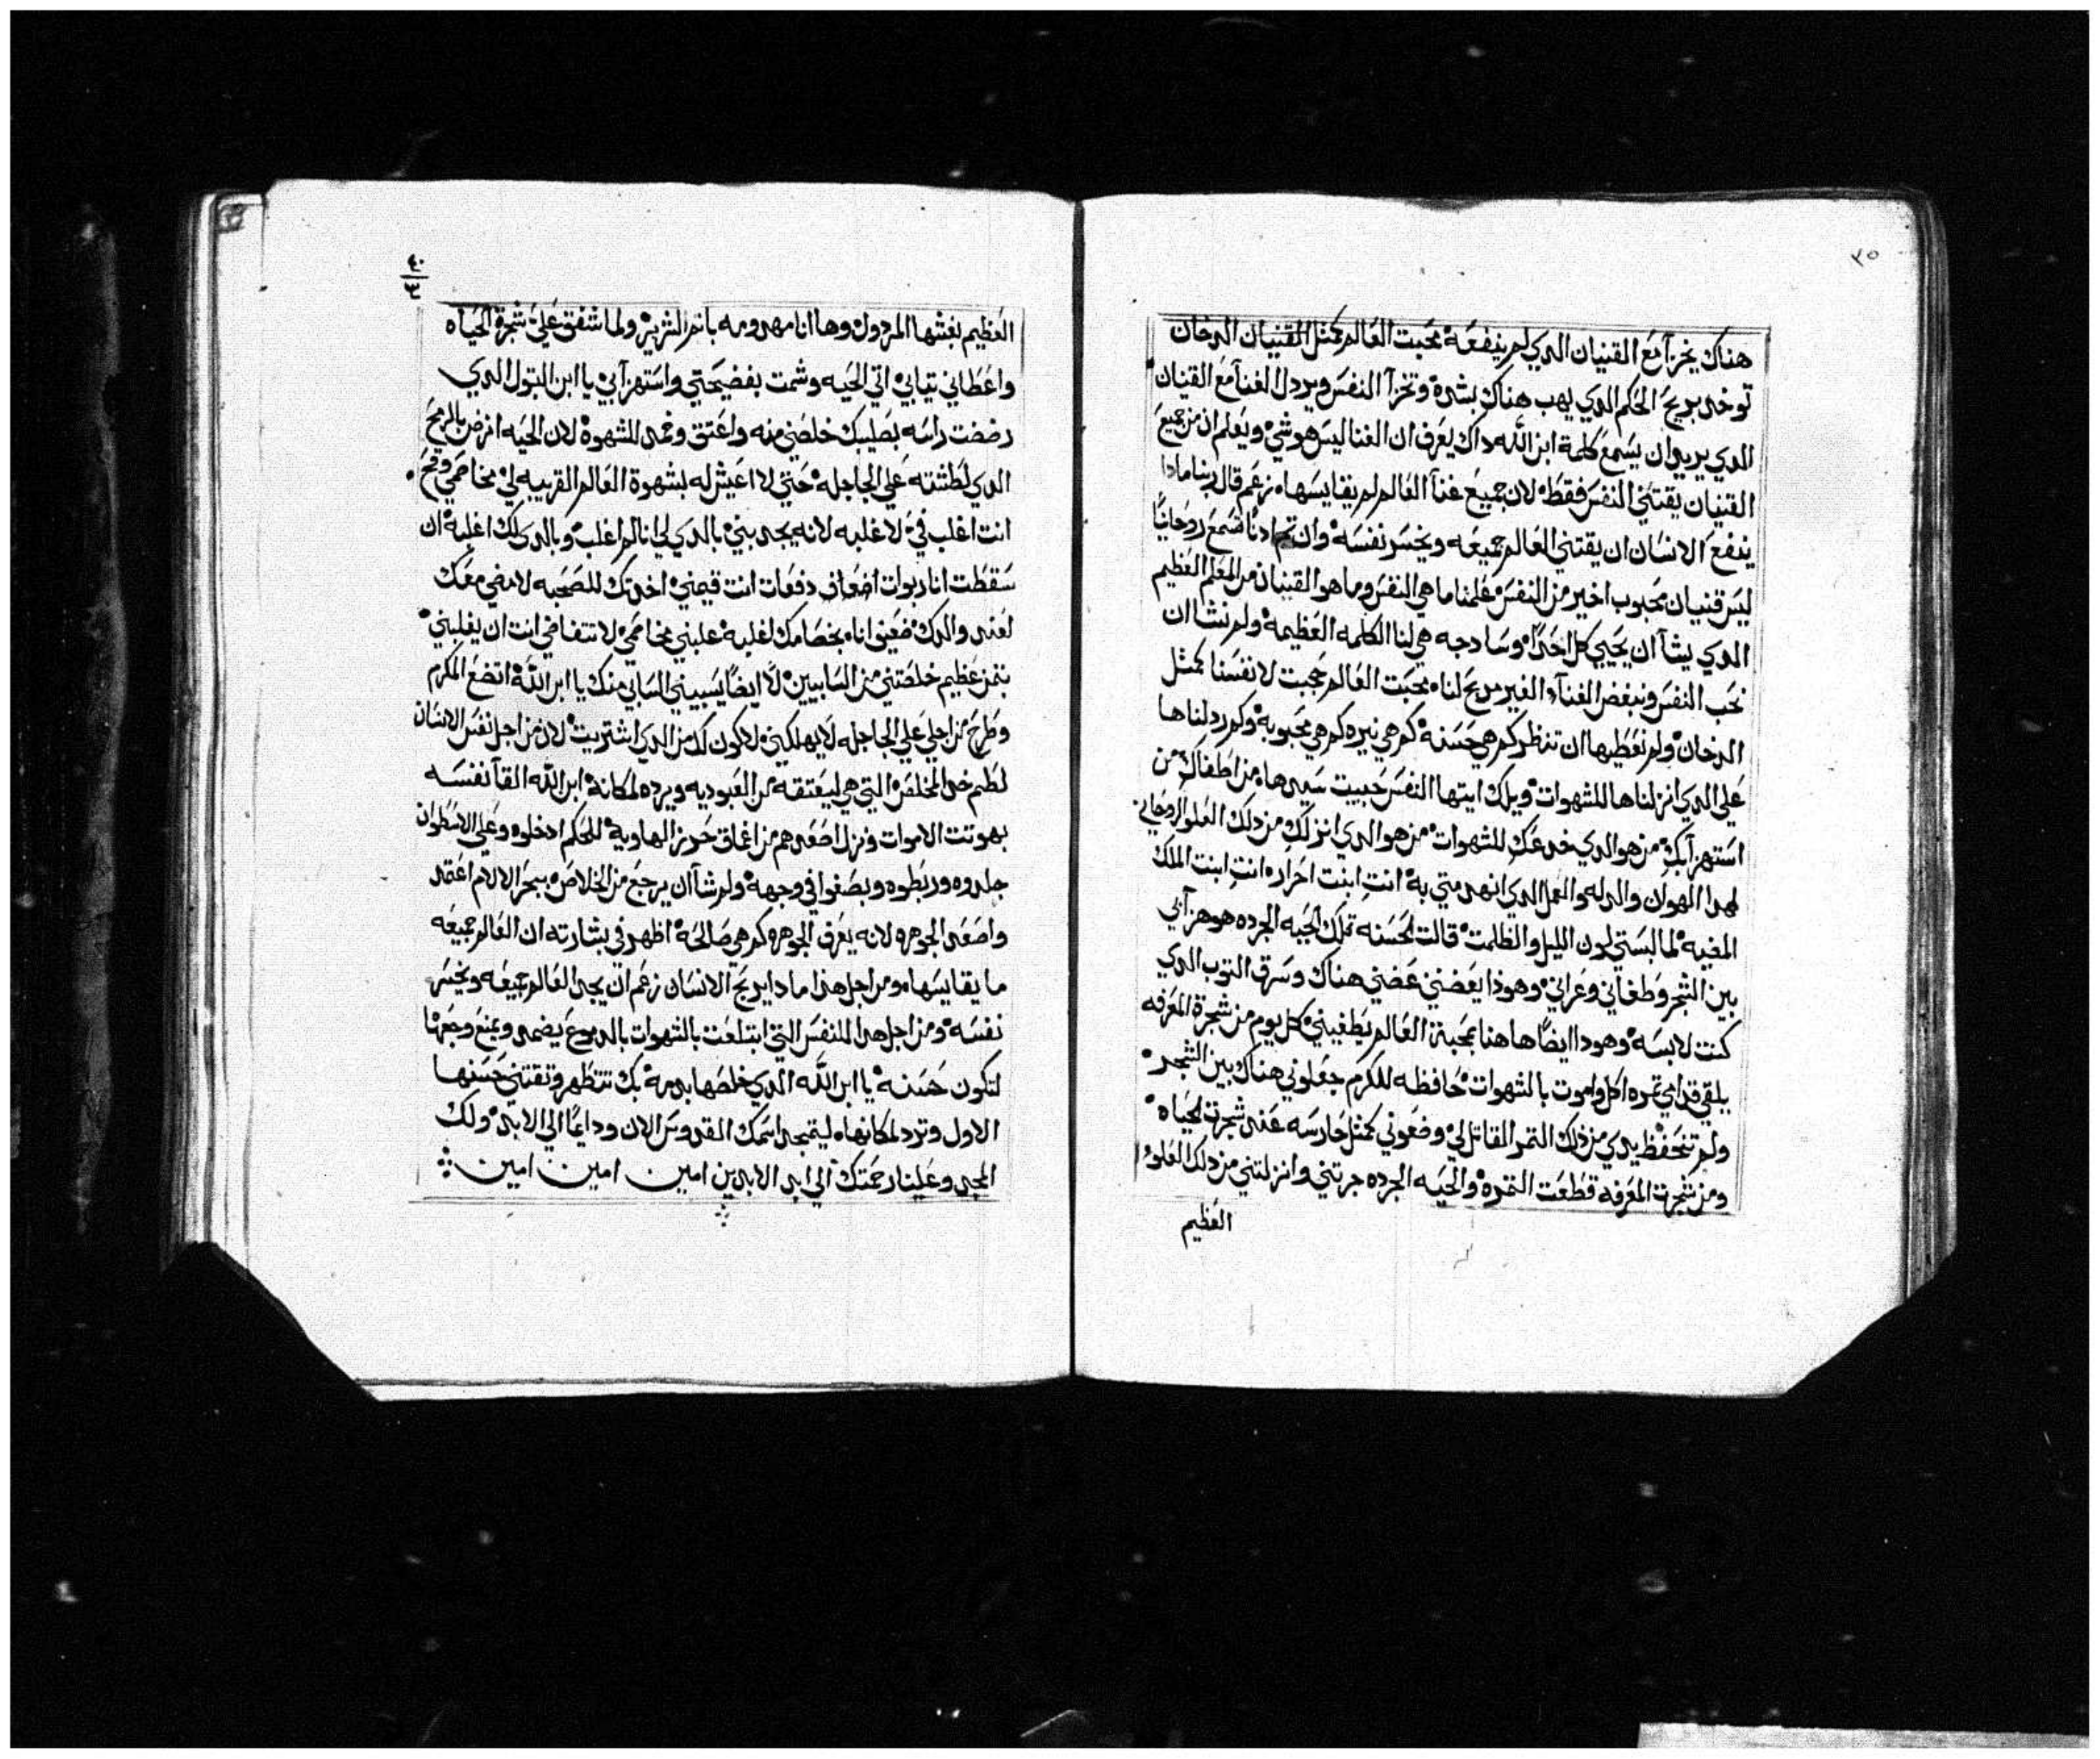 ٣٥
هناك يخزآ مع القنيان الدي لم ينفعه محبت العالم كمثل القنيان الدخان
توخد بريح الحكم الدي يهب هناك بشده وتخزآ النفس ويردل الغنآ مع القنيان
الدي يريد ان يسمع كلمة ابن الله داك يعرف ان الغنا ليس هو شي ويعلم ان من جميع
القنيان يقتني النفس فقط لان جميع غنآ العالم لم يقايسها زعم قال ربنا مادا
ينفع الانسان ان يقتني العالم جميعه ويخسر نفسه وان تم ادنًا تسمع روحانيًا
ليس قنيان محبوب اخير من النفس علمنا ما هي النفس وما هو القنيان من المعلم العظيم
الدي يشآ ان يحيي كل احدًا وسادجه هي لنا الكلمه العظيمة ولم نشا ان
نحب النفس ونبغض الغنآء الغير مربح لنا محبت العالم حجبت لانفسنا كمثل
الدخان ولم نعطيها ان تنظر كم هي حسنه كم هي نيره كم هي محبوبه وكم ردلناها
علي الدي انزلناها للشهوات ويلك ايتها النفس حبيبت سيدها من اطفاكِ من
استهزآ بكِ من هو الدي خدعكِ للشهوات من هو الدي انزلكِ من دلك العلو الروحاني
لهدا الهوان والدله والعمل الدي انهدمتي به انتِ ابنت احرار انتِ ابنت الملك
المضيه لما لبستي لون الليل والظلمت قالت الحسنه تلك الحيه الجرده هو هزآ بي
بين الشجر وطغاني وعراني وهوذا يعضني عضني هناك وسرق التوب الدي
كنت لابسه وهودا ايضًا هاهنا بمحبة العالم يطغيني كل يوم من شجرة المعرفه
يلقي قدامي تمره اكل واموت بالشهوات حافظه للكرم جعلوني هناك بين الشجر
ولم تنحفظ يدي من ذلك التمر القاتل لي وضعوني كمثل حارسه عند شجرة الحياه
ومن شجرة المعرفه قطعت التمره والحيه الجرده جرتني وانزلتني من دلك العلو
العظيم
٤٠
٣
العظيم بغشها المردول وها انا مهدومه باتم الشرير ولما اشفق علي شجرة الحياه
واعطاني تيابي اتي الحيه وشمت بفضيحتي واستهزآ بي يا ابن البتول الدي
رضضت راسه بصليبك خلصني منه واعتق وخمد الشهوة لان الحيه انرض بالرمح
الدي لطشته علي الجاجله حتي لا اعيش له بشهوة العالم القريبه لي مخاصمي وقح
انت اغلب في لاغلبه لانه يجدبني بالدي لي انا لم اغلب وبالدي لك اغلبه ان
سقطت انا ربوات اضعاف دفعات انت قيمني اخدتك للصحبه لامضي معك
لعند والدك ضعيف انا بخصامك لغلبة علبني مخاصمي لا تتغاضي انت ان يغلبني
بتمن عظيم خلصتني من السابيين لا ايضًا يسبيني السابي منك يا ابن الله اتضع المكرم
وطرح من اجلي علي الجاجله لا يهلكني لاكون لك من الدي اشتريت لان من اجل نفس الانسان
لطم خد المخلص التي هي ليعتقه من العبوديه ويرده لمكانه ابن الله القآ نفسه
بهوتت الاموات ونزل اصعدهم من اعماق حرز الهاوية للحكم ادخلوه وعلي الاسطوان
جلدوه وربطوه وبصقوا في وجهه ولم شآ ان يرجع من الخلاص ببحر الالام اعتمد
واصعد الجوهره لانه يعرف الجوهره كم هي صالحة اظهر في بشارته ان العالم جميعه
ما يقايسها ومن اجل هذا مادا يربح الانسان زعم ان يجد العالم جميعه ويخسر
نفسه ومن اجل هدا للنفس التي ابتلعت بالشهوات بالدموع يضمد ويمنع وجعها
لتكون حسنه يا ابن الله الدي خلصها بدمه بك تتطهر وتقتني حسنها
الاول وترد لمكانها ليتمجد اسمك القدوس الان ودايمًا الي الابد ولك
المجد وعلينا رحمتك الي ابد الابدين امين امين امين